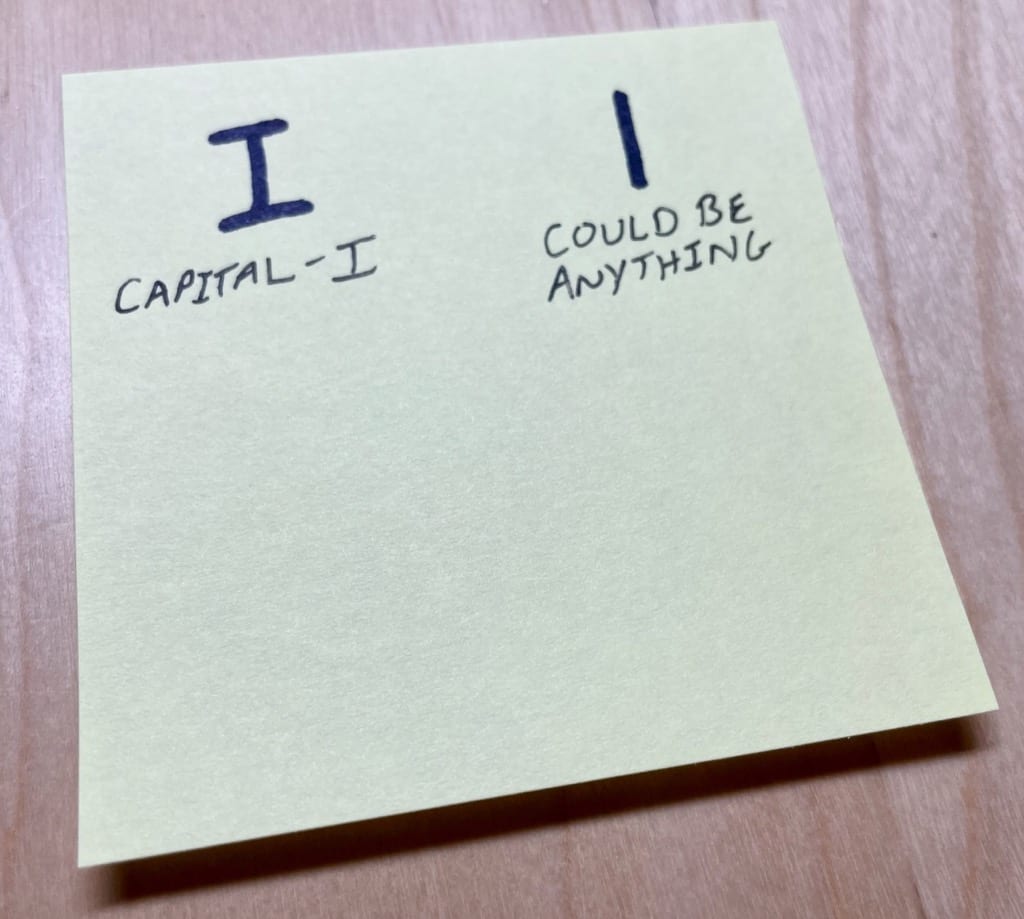 I |
CAPITAL-I COULD BE
ANYTHING